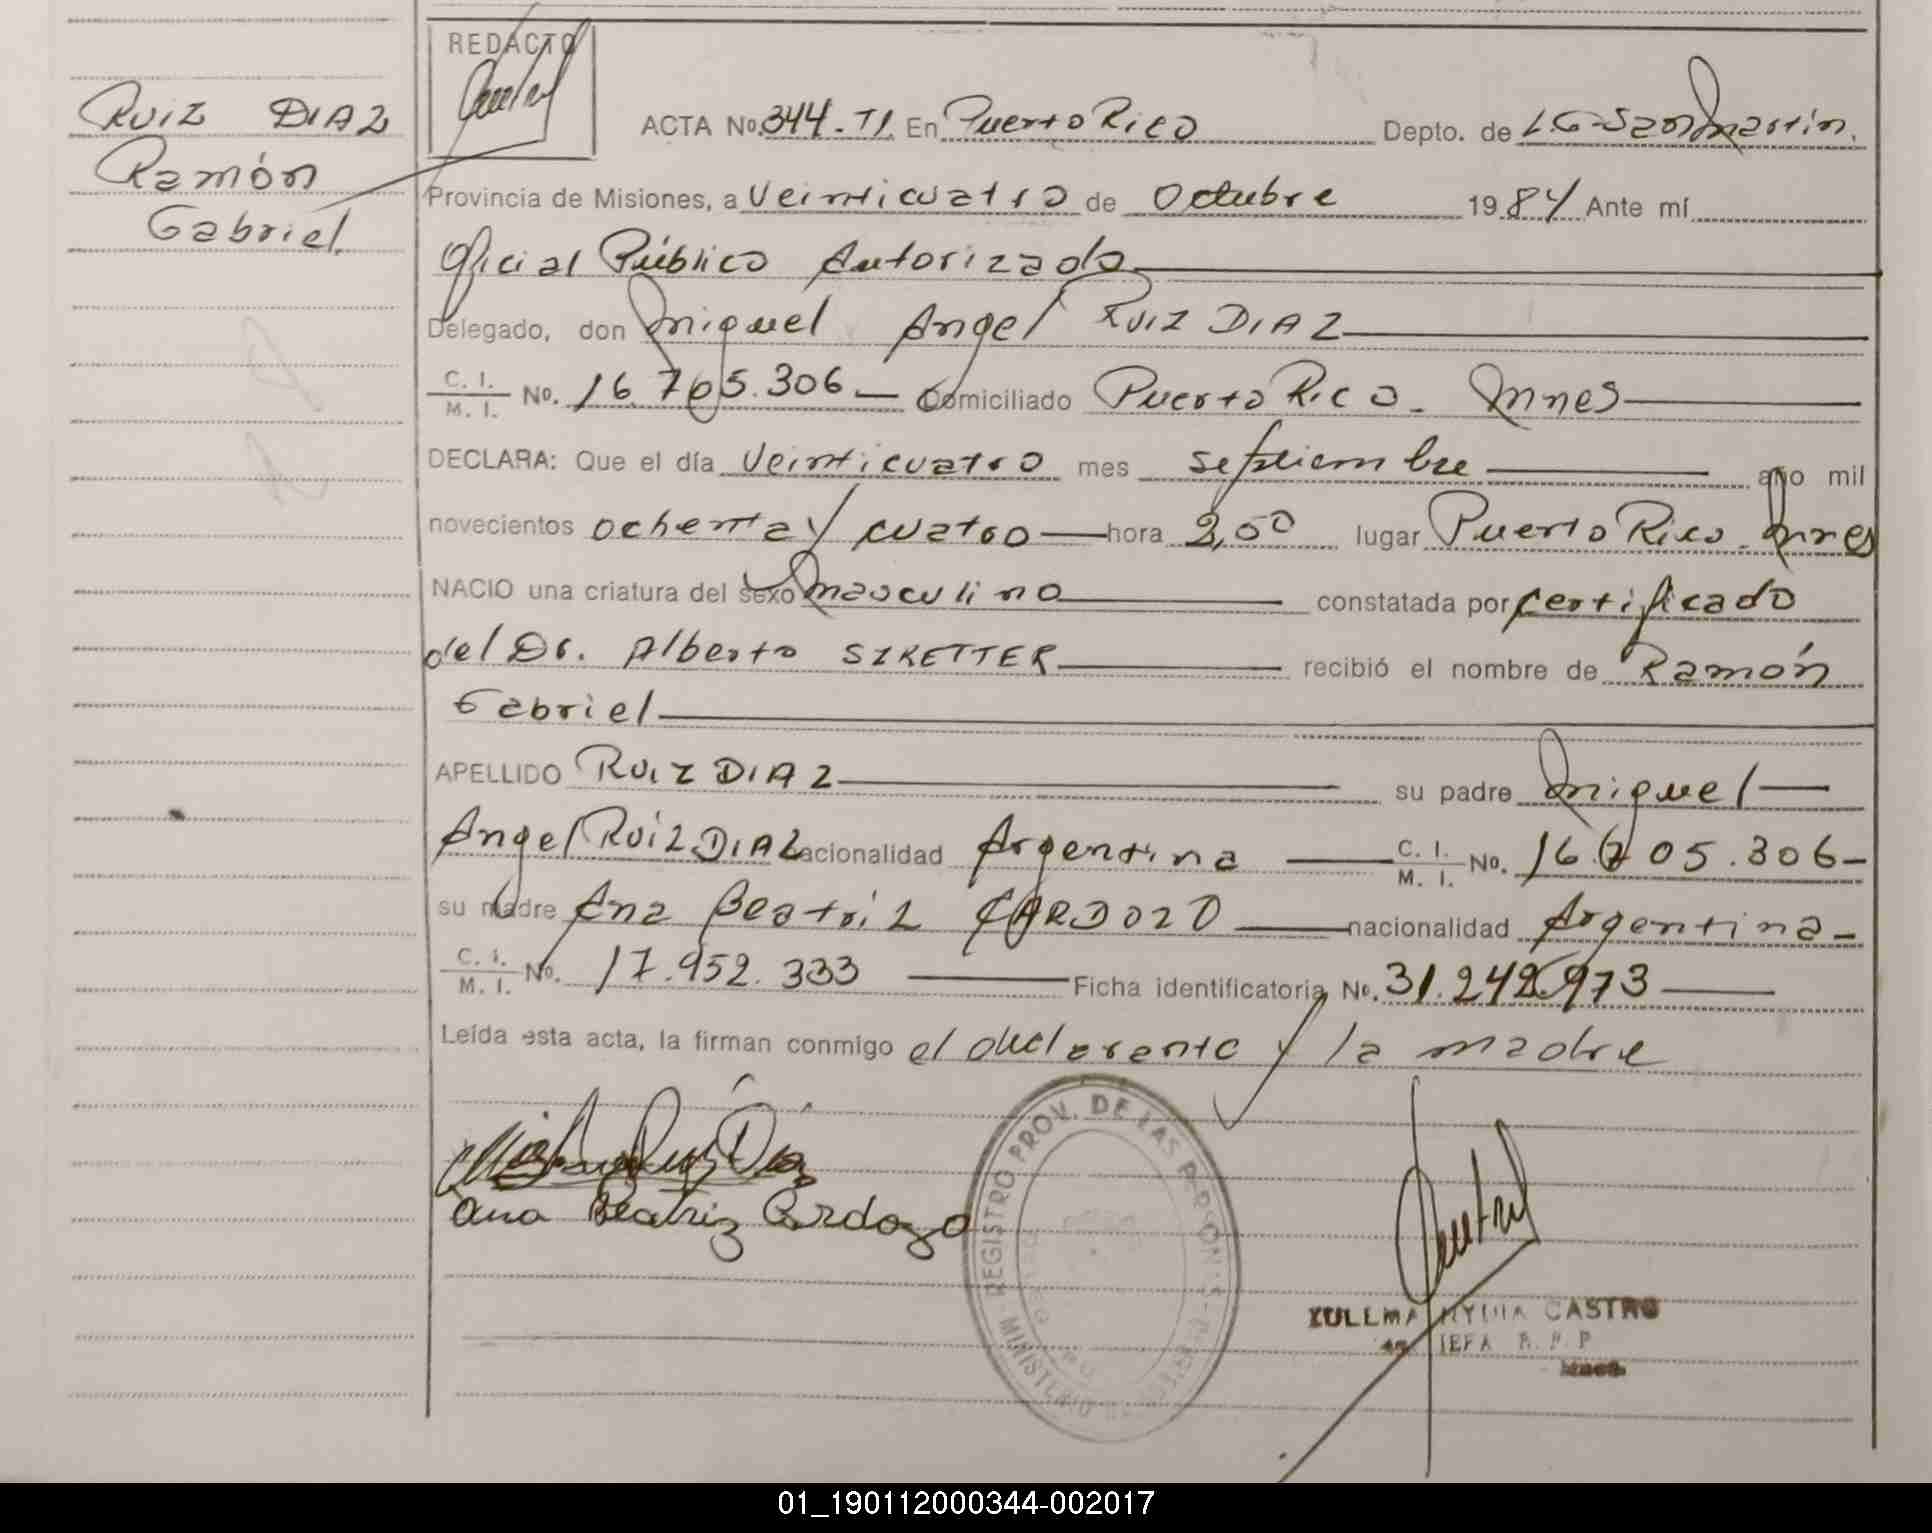 RUIZ DIAZ
Ramón
Gabriel.
REDACTO
ACTA No. 344-TI. En Puerto Rico Depto. de L.G-San Martín.
Provincia de Misiones, a Veinticuatro de Octubre 1984 Ante mí
Oficial Público Autorizado
Delegado, don Miguel Angel RUIZ DIAZ
C. I. / M. I. No. 16.705.306 Domiciliado Puerto Rico - Mnes
DECLARA: Que el día Veinticuatro mes septiembre año mil
novecientos ochenta y cuatro hora 2,50 lugar Puerto Rico - Mnes
NACIO una criatura del sexo masculino constatada por certificado
del Dr. Alberto SZRETTER recibió el nombre de Ramón
Gabriel
APELLIDO RUIZ DIAZ su padre Miguel
Angel RUIZ DIAZ nacionalidad Argentina C. I. / M. I. No. 16.705.306-
su madre Ana Beatriz CARDOZO nacionalidad Argentina-
C. I. / M. I. No. 17.952.333 Ficha identificatoria No. 31.242.973
Leída esta acta, la firman conmigo el declarante y la madre
Ruiz Diaz
Ana Beatriz Cardozo
REGISTRO PROV. DE LAS PERSONAS
MINISTERIO
ZULLMA CASTRO
JEFA R. P. P
01_190112000344-002017